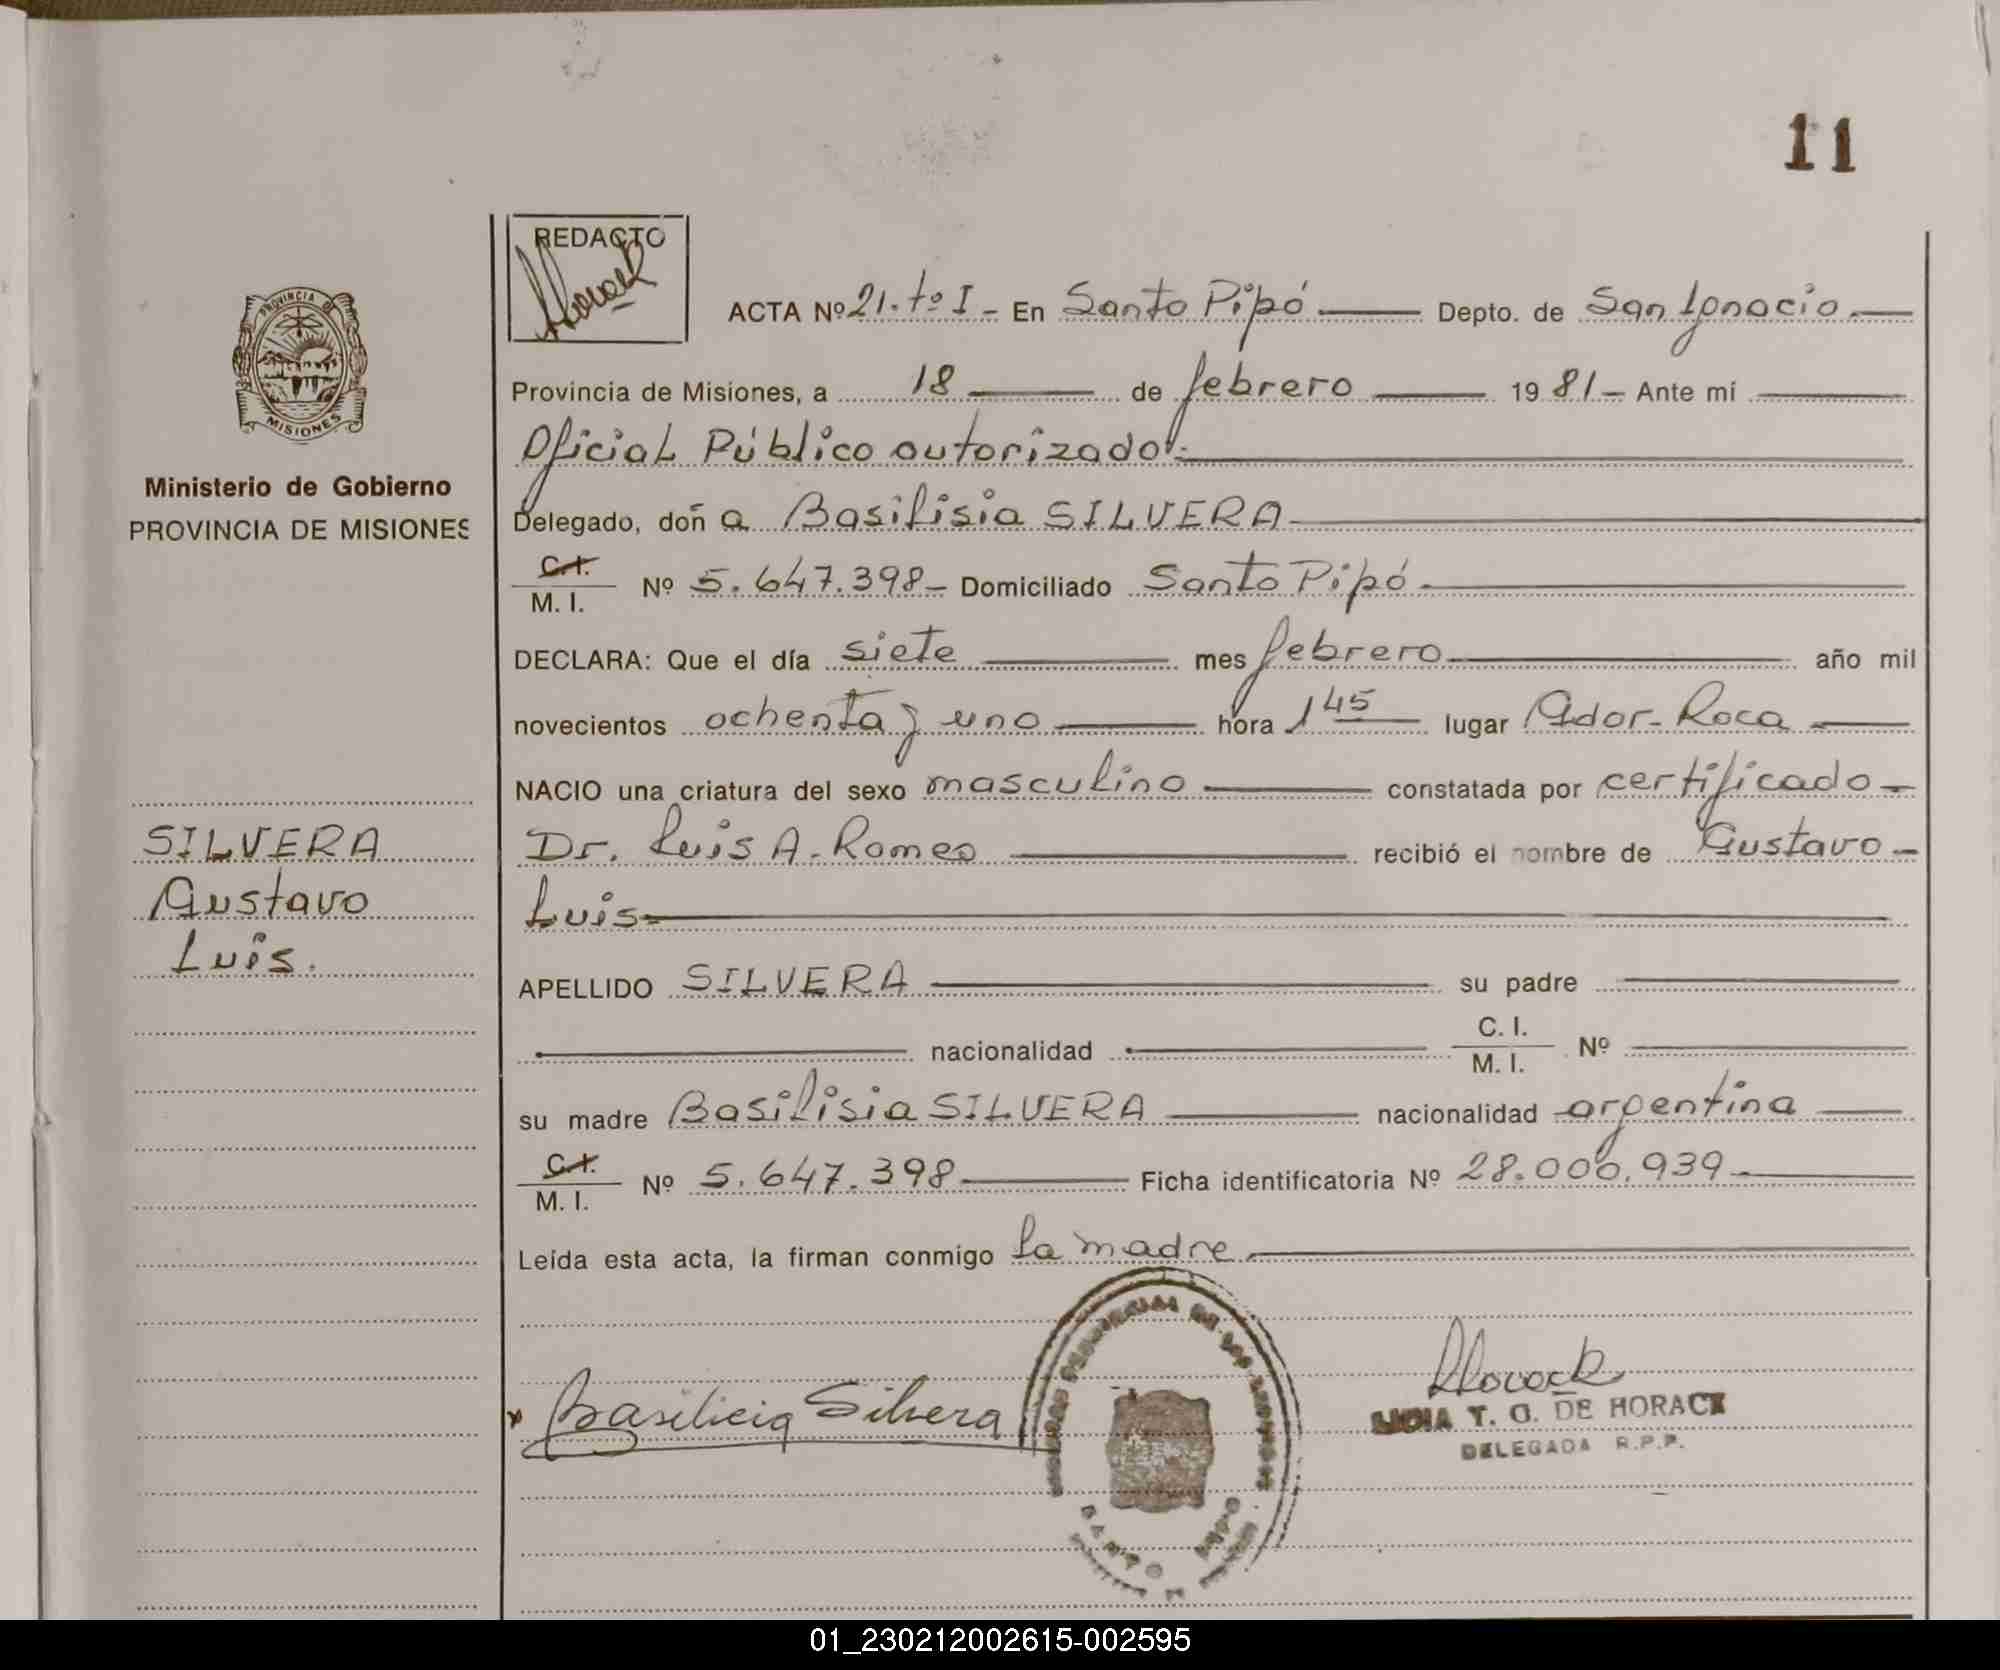 11
REDACTO
Horack
ACTA Nº 21. tº I - En Santo Pipó Depto. de San Ignacio
PROVINCIA DE
MISIONES
Provincia de Misiones, a 18 de febrero 1981 - Ante mí
Oficial Público autorizado.
Ministerio de Gobierno
PROVINCIA DE MISIONES
Delegado, doña Basilisia SILVERA
C.I.
M. I. Nº 5.647.398 - Domiciliado Santo Pipó
DECLARA: Que el día siete mes febrero año mil
novecientos ochenta y uno hora 1 45 lugar Gdor. Roca
NACIO una criatura del sexo masculino constatada por certificado
SILVERA
Gustavo
Luis.
Dr. Luis A. Romeo recibió el nombre de Gustavo
Luis
APELLIDO SILVERA su padre
nacionalidad C. I.
M. I. Nº
su madre Basilisia SILVERA nacionalidad argentina
C.I.
M. I. Nº 5.647.398 Ficha identificatoria Nº 28.000.939
Leída esta acta, la firman conmigo la madre
Basilicia Silvera
Horack
LIDIA T. G. DE HORACK
DELEGADA R.P.P.
PROVINCIAL DE LAS
SANTO PIPO
01_230212002615-002595